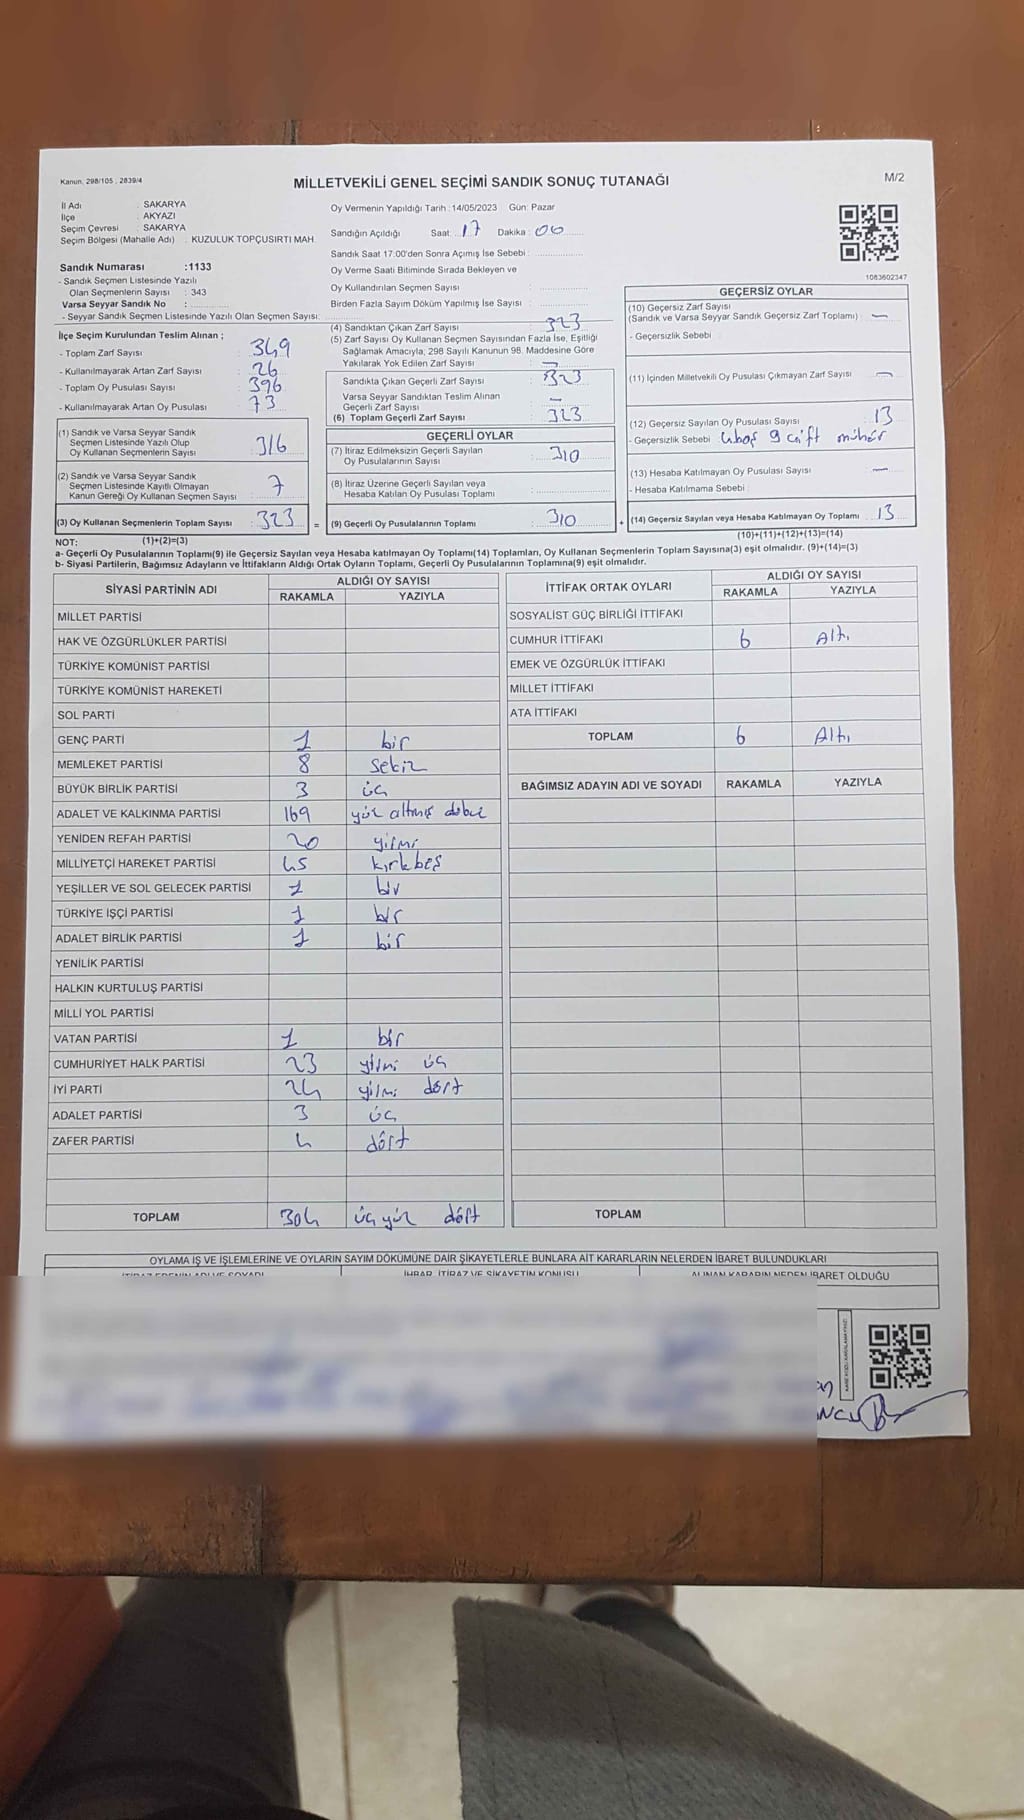 Kanun, 298/105 , 2839/4
MİLLETVEKİLİ GENEL SEÇİMİ SANDIK SONUÇ TUTANAĞI
M/2
İl Adı : SAKARYA
İlçe : AKYAZI
Seçim Çevresi : SAKARYA
Seçim Bölgesi (Mahalle Adı) : KUZULUK TOPÇUSIRTI MAH.
Sandık Numarası :1133
- Sandık Seçmen Listesinde Yazılı
Olan Seçmenlerin Sayısı : 343
Varsa Seyyar Sandık No :
- Seyyar Sandık Seçmen Listesinde Yazılı Olan Seçmen Sayısı:
Oy Vermenin Yapıldığı Tarih :14/05/2023 Gün: Pazar
Sandığın Açıldığı Saat: 17 Dakika : 00
Sandık Saat 17:00'den Sonra Açımış İse Sebebi :
Oy Verme Saati Bitiminde Sırada Bekleyen ve
Oy Kullandırılan Seçmen Sayısı :
Birden Fazla Sayım Döküm Yapılmış İse Sayısı :
1083602347
İlçe Seçim Kurulundan Teslim Alınan ;
- Toplam Zarf Sayısı : 349
- Kullanılmayarak Artan Zarf Sayısı : 26
- Toplam Oy Pusulası Sayısı : 396
- Kullanılmayarak Artan Oy Pusulası : 73
(1) Sandık ve Varsa Seyyar Sandık
Seçmen Listesinde Yazılı Olup
Oy Kullanan Seçmenlerin Sayısı : 316
(2) Sandık ve Varsa Seyyar Sandık
Seçmen Listesinde Kayıtlı Olmayan
Kanun Gereği Oy Kullanan Seçmen Sayısı : 7
(3) Oy Kullanan Seçmenlerin Toplam Sayısı : 323 =
(4) Sandıktan Çıkan Zarf Sayısı : 323
(5) Zarf Sayısı Oy Kullanan Seçmen Sayısından Fazla İse, Eşitliği
Sağlamak Amacıyla; 298 Sayılı Kanunun 98. Maddesine Göre
Yakılarak Yok Edilen Zarf Sayısı : —
Sandıkta Çıkan Geçerli Zarf Sayısı : 323
Varsa Seyyar Sandıktan Teslim Alınan
Geçerli Zarf Sayısı : —
(6) Toplam Geçerli Zarf Sayısı : 323
GEÇERLİ OYLAR
(7) İtiraz Edilmeksizin Geçerli Sayılan
Oy Pusulalarının Sayısı : 310
(8) İtiraz Üzerine Geçerli Sayılan veya
Hesaba Katılan Oy Pusulası Toplamı :
(9) Geçerli Oy Pusulalarının Toplamı : 310 +
GEÇERSİZ OYLAR
(10) Geçersiz Zarf Sayısı
(Sandık ve Varsa Seyyar Sandık Geçersiz Zarf Toplamı) : —
- Geçersizlik Sebebi :
(11) İçinden Milletvekili Oy Pusulası Çıkmayan Zarf Sayısı : —
(12) Geçersiz Sayılan Oy Pusulası Sayısı : 13
- Geçersizlik Sebebi : 4 boş 9 çift mühür
(13) Hesaba Katılmayan Oy Pusulası Sayısı : —
- Hesaba Katılmama Sebebi :
(14) Geçersiz Sayılan veya Hesaba Katılmayan Oy Toplamı : 13
NOT: (1)+(2)=(3) (10)+(11)+(12)+(13)=(14)
a- Geçerli Oy Pusulalarının Toplamı(9) ile Geçersiz Sayılan veya Hesaba katılmayan Oy Toplamı(14) Toplamları, Oy Kullanan Seçmenlerin Toplam Sayısına(3) eşit olmalıdır. (9)+(14)=(3)
b- Siyasi Partilerin, Bağımsız Adayların ve İttifakların Aldığı Ortak Oyların Toplamı, Geçerli Oy Pusulalarının Toplamına(9) eşit olmalıdır.
SİYASİ PARTİNİN ADI ALDIĞI OY SAYISI
RAKAMLA YAZIYLA
MİLLET PARTİSİ
HAK VE ÖZGÜRLÜKLER PARTİSİ
TÜRKİYE KOMÜNİST PARTİSİ
TÜRKİYE KOMÜNİST HAREKETİ
SOL PARTİ
GENÇ PARTİ 1 bir
MEMLEKET PARTİSİ 8 sekiz
BÜYÜK BİRLİK PARTİSİ 3 üç
ADALET VE KALKINMA PARTİSİ 169 yüz altmış dokuz
YENİDEN REFAH PARTİSİ 20 yirmi
MİLLİYETÇİ HAREKET PARTİSİ 45 kırkbeş
YEŞİLLER VE SOL GELECEK PARTİSİ 1 bir
TÜRKİYE İŞÇİ PARTİSİ 1 bir
ADALET BİRLİK PARTİSİ 1 bir
YENİLİK PARTİSİ
HALKIN KURTULUŞ PARTİSİ
MİLLİ YOL PARTİSİ
VATAN PARTİSİ 1 bir
CUMHURİYET HALK PARTİSİ 23 yirmi üç
İYİ PARTİ 24 yirmi dört
ADALET PARTİSİ 3 üç
ZAFER PARTİSİ 4 dört
TOPLAM 304 üç yüz dört
İTTİFAK ORTAK OYLARI ALDIĞI OY SAYISI
RAKAMLA YAZIYLA
SOSYALİST GÜÇ BİRLİĞİ İTTİFAKI
CUMHUR İTTİFAKI 6 Altı
EMEK VE ÖZGÜRLÜK İTTİFAKI
MİLLET İTTİFAKI
ATA İTTİFAKI
TOPLAM 6 Altı
BAĞIMSIZ ADAYIN ADI VE SOYADI RAKAMLA YAZIYLA
TOPLAM
OYLAMA İŞ VE İŞLEMLERİNE VE OYLARIN SAYIM DÖKÜMÜNE DAİR ŞİKAYETLERLE BUNLARA AİT KARARLARIN NELERDEN İBARET BULUNDUKLARI
İTİRAZ EDENİN ADI VE SOYADI İHBAR, İTİRAZ VE ŞİKAYETİN KONUSU ALINAN KARARIN NEDEN İBARET OLDUĞU